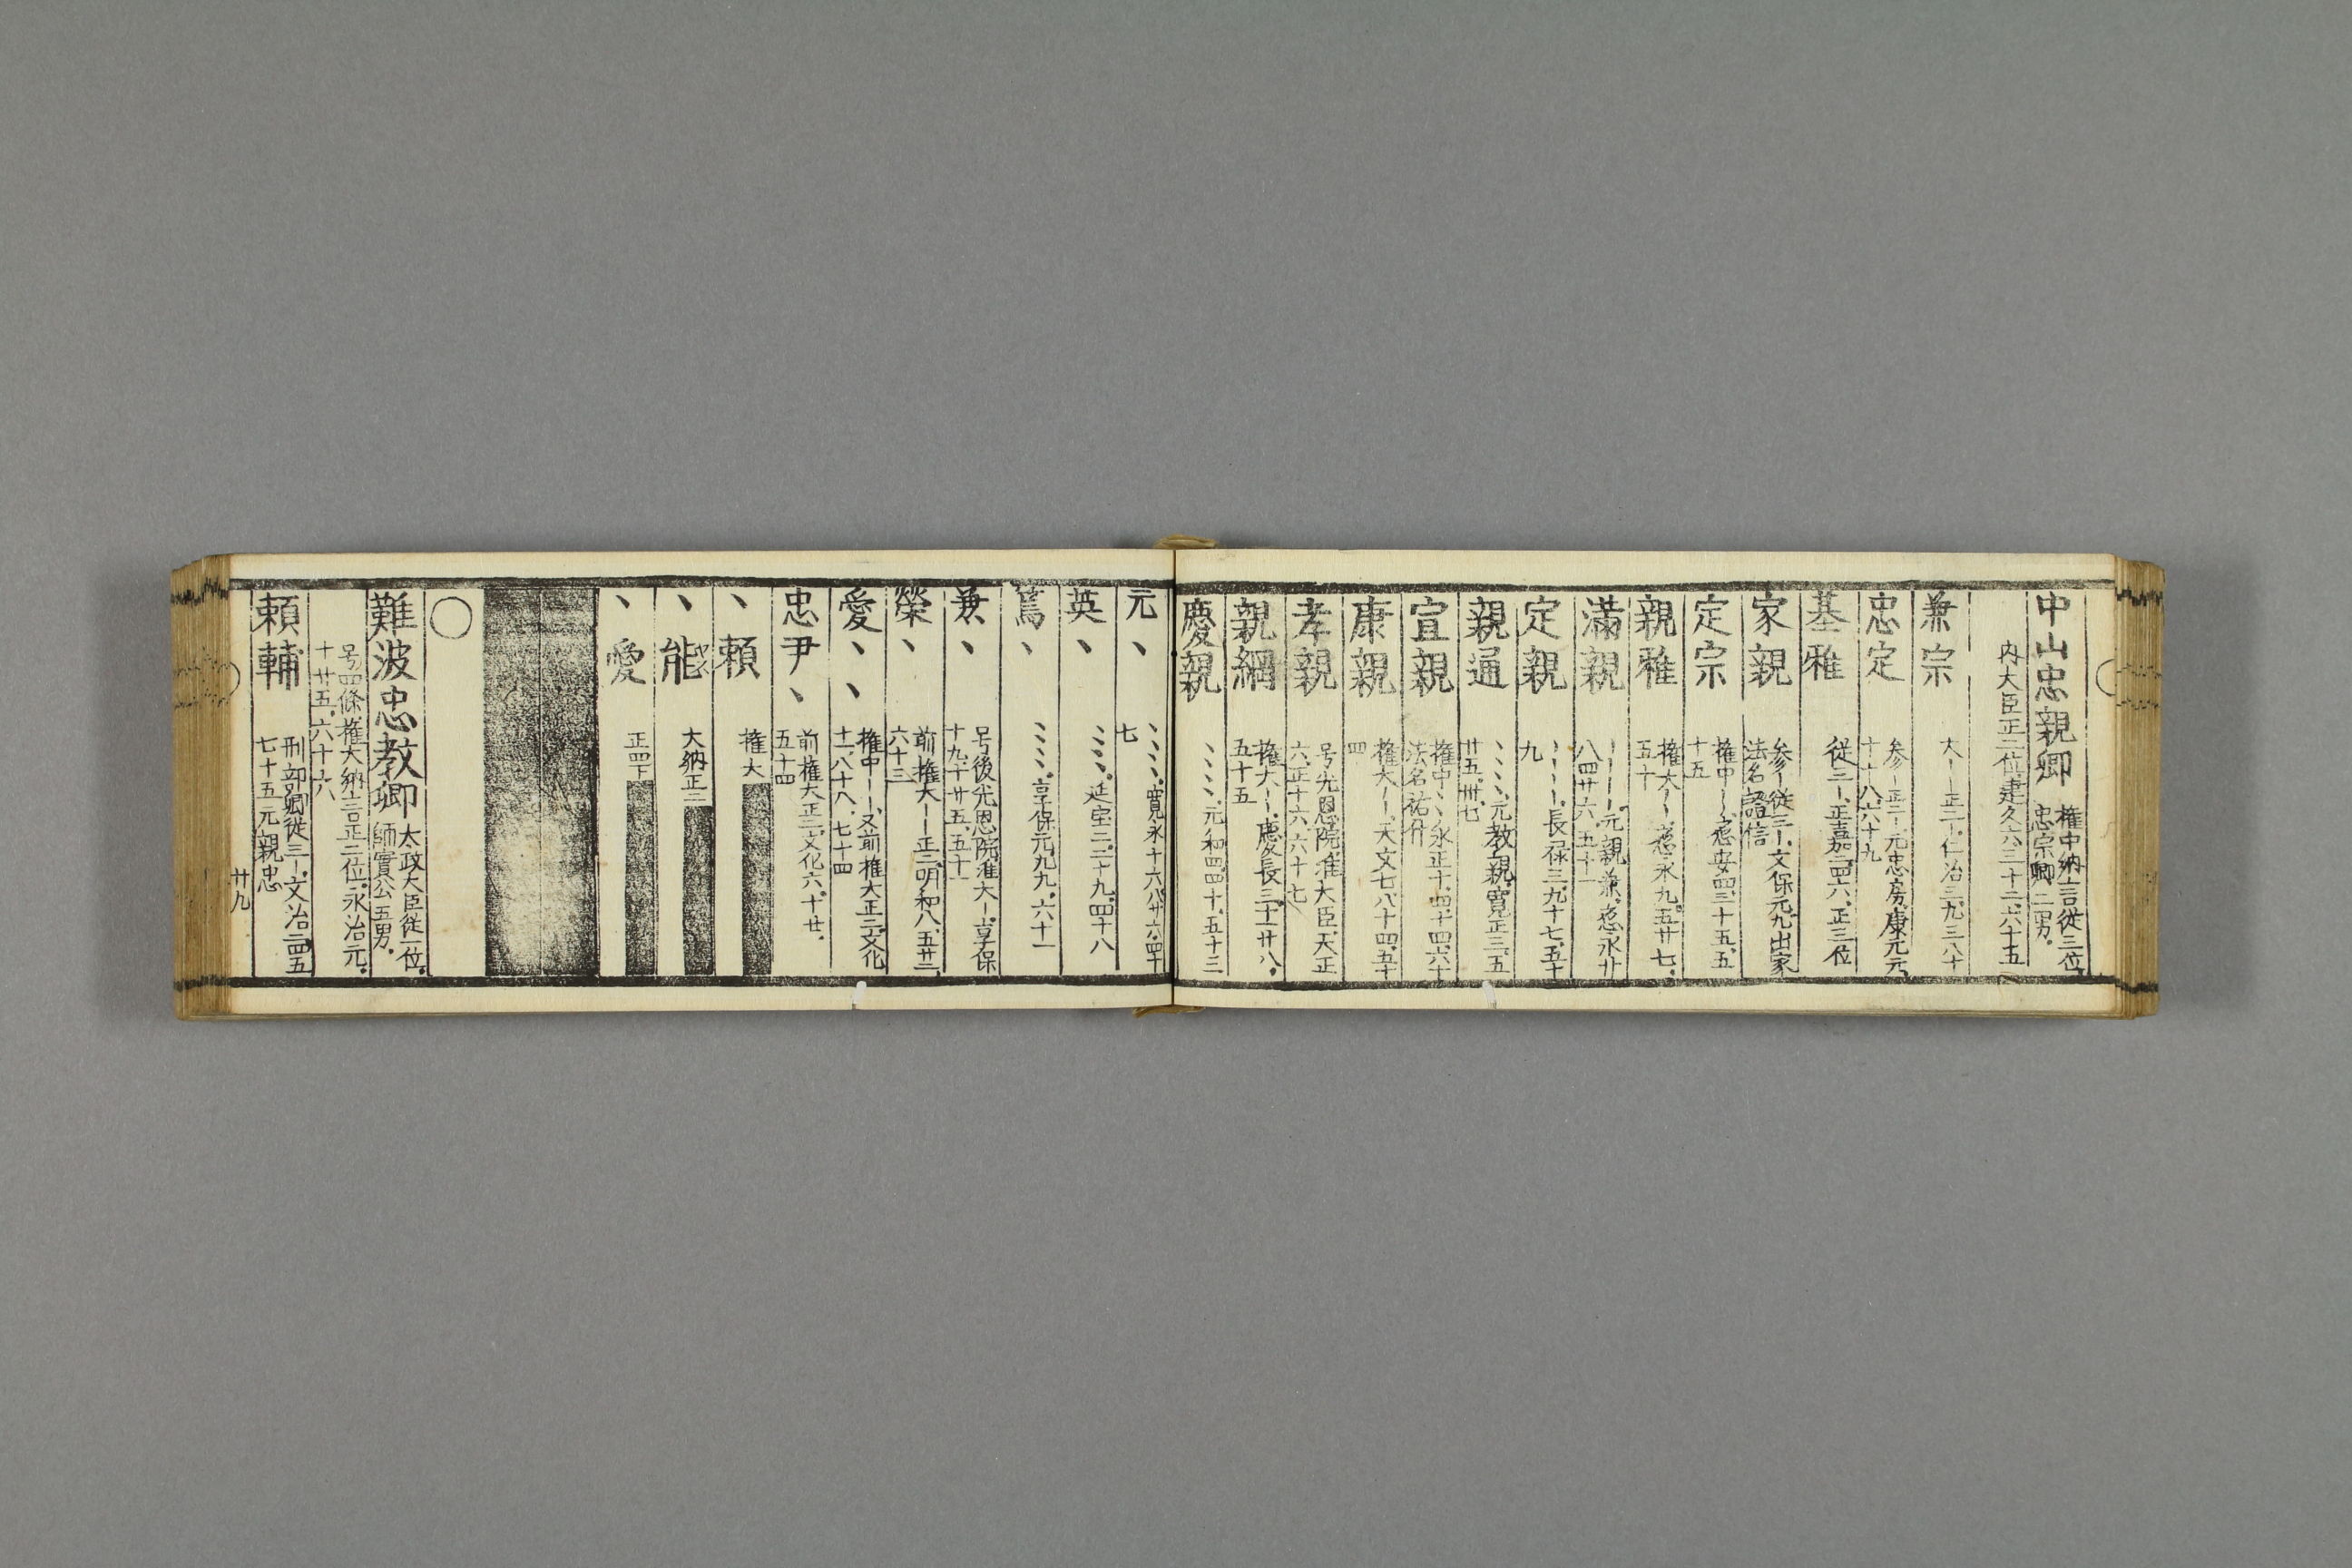 中山忠親卿 権中納言従三位
忠宗卿二男
内大臣正二位建久六三十二六十五
兼宗 大〡正二〡仁治三九三八十
忠定 参〡正二〡元忠房康元元
十十八六十九
基雅 従三〡正嘉二四六正三位
家親 参〡従三〡文保元九出家
法名證信
定宗 権中〡〡応安四三十五五
十五
親雅 権大〡〡応永九五廿七
五十
満親 〡〡〡〡元親兼応永廿
八四廿六五十一
定親 〡〡〡〡長禄三九十七五十
九
親通 丶丶丶丶元教親寛正三五
廿五卅七
宣親 権中丶丶永正十四十四六十
法名祐什
康親 権大〡〡天文七八十四五十
四
孝親 号光恩院准大臣天正
六正十六六十七
親綱 権大〡〡慶長三十一廿八
五十五
慶親 丶丶丶丶元和四四十五十三
元丶 丶丶丶丶寛永十六八廿六四十
七
英丶 丶丶丶丶延宝二二十九四十八
篤丶 丶丶丶丶享保元九九六十一
兼丶 号後光恩院准大〡享保
十九十廿五五十一
榮丶 前権大〡〡正二明和八五廿二
六十三
愛丶丶 権中〡〡又前権大正二文化
十一八十八七十四
忠尹丶 前権大正二文化六十廿
五十四
丶頼 権大
丶能 大納正二
丶愛 正四下
難波忠教卿 太政大臣従一位
師實公五男
号四條権大納言正二位永治元
十廿五六十六
頼輔 刑部卿従三〡文治二四五
七十五元親忠
廿九